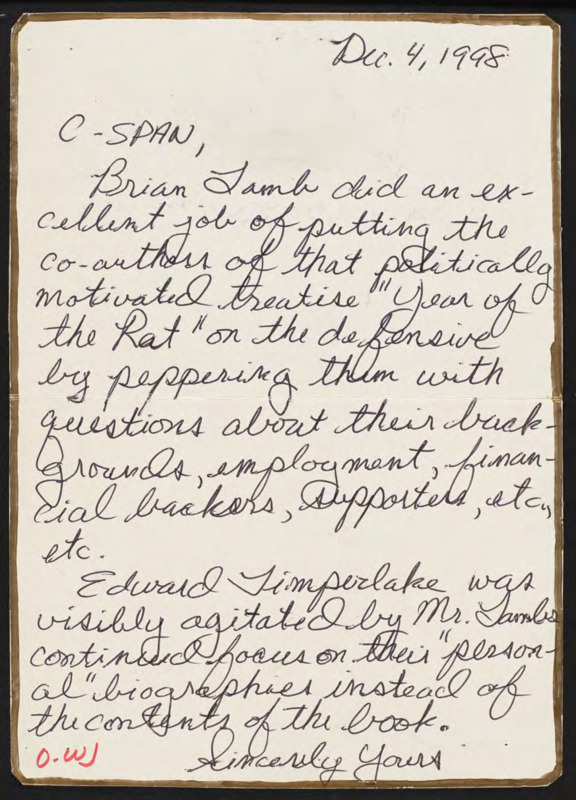 Dec. 4, 1998
C-SPAN,
Brian Lamb did an ex-
cellent job of putting the
co-authors of that politically
motivated treatise "Year of
the Rat" on the defensive
by peppering them with
questions about their back-
grounds, employment, finan-
cial backers, supporters, etc,,
etc.
Edward Timperlake was
visibly agitated by Mr. Lambs
continued focus on their "person-
al" biographies instead of
the contents of the book.
O.WJ
Sincerely Yours